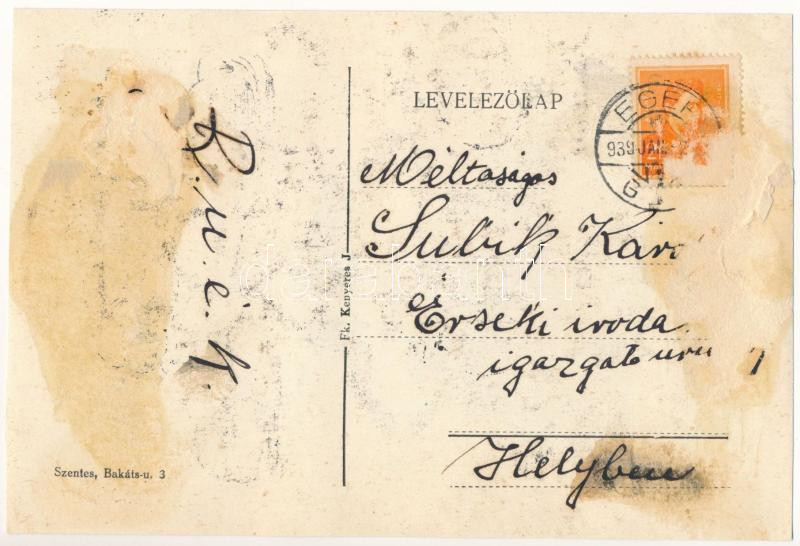 LEVELEZŐLAP
EGER
939 JAN.
B. u. é. k.
Méltóságos
Subik Kár
Érseki iroda
igazgató
Helyben
Fk. Kenyeres J.
Szentes, Bakáts-u. 3